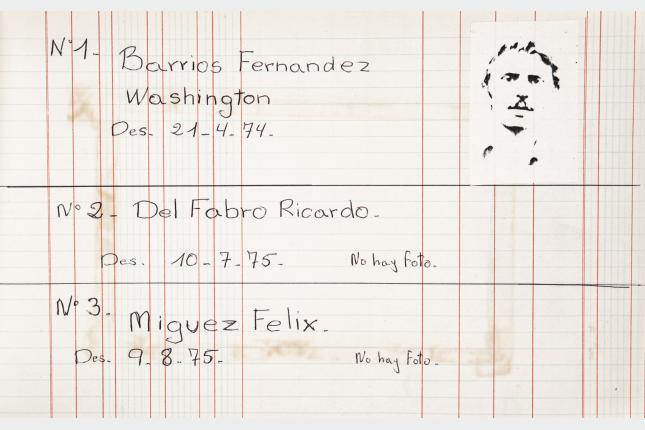 Nº1- Barrios Fernandez
Washington
Des. 21-4-74.
Nº 2- Del Fabro Ricardo.
Des. 10-7-75- No hay Foto.
Nº 3. Miguez Felix.
Des. 9-8-75- No hay Foto.